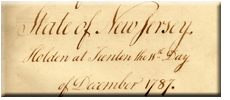 State of New Jersey.
Holden at Trenton the Day
of December 1787.